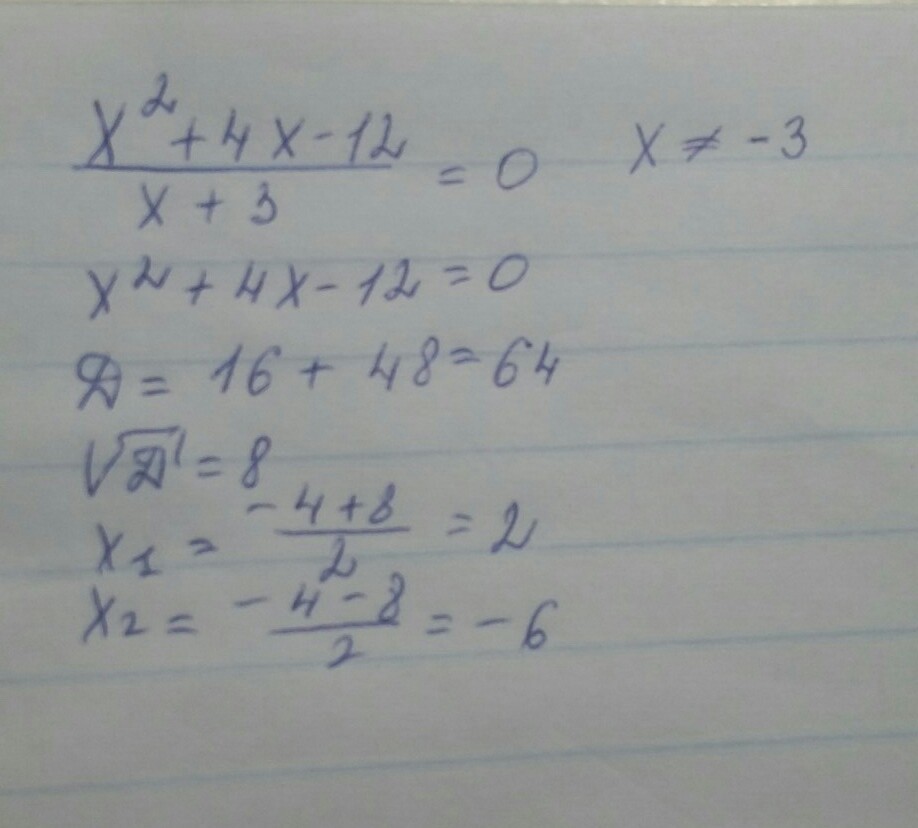 x² + 4x - 12 / x + 3 = 0    x ≠ -3
x² + 4x - 12 = 0
D = 16 + 48 = 64
√D = 8
x₁ = -4+8 / 2 = 2
x₂ = -4-8 / 2 = -6